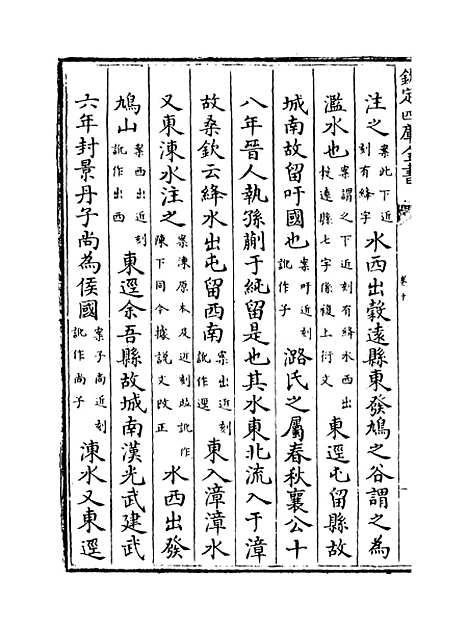 欽定四庫全書
注之案此下近刻有絳字水西出穀遠縣東發鳩之谷謂之為
濫水也案謂之下近刻有絳水西出穀遠縣七字係複上衍文東逕屯留縣故
城南故留吁國也案吁近刻訛作子潞氏之屬春秋襄公十
八年晉人執孫蒯于純留是也其水東北流入于漳
故桑欽云絳水出屯留西南案出近刻訛作逕東入漳漳水
又東涷水注之案涷原本及近刻竝訛作陳下同今據說文改正水西出發
鳩山案西出近刻訛作出西東逕余吾縣故城南漢光武建武
六年封景丹子尚為侯國案子尚近刻訛作尚子涷水又東逕